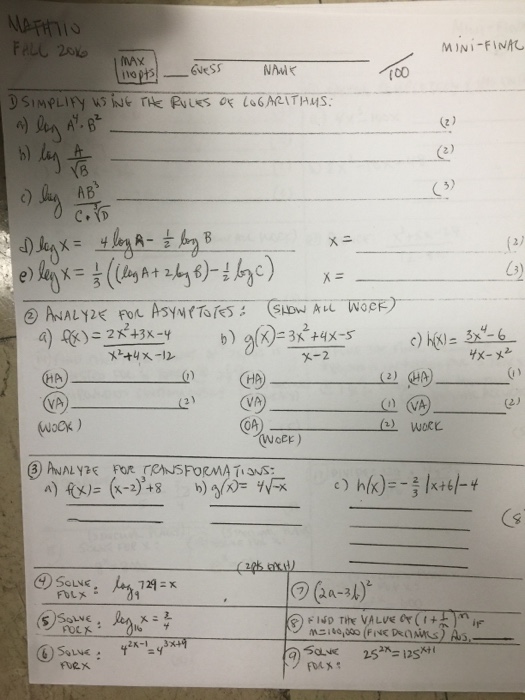 MATH 110
FALL 2016
MINI-FINAL
MAX
110 pts
GUESS
NAME
/100
1) SIMPLIFY USING THE RULES OF LOGARITHMS:
a) log A⁴·B² (2)
b) log A/√B (2)
c) log AB³/C·∛D (3)
d) log x = 4 log A - ½ log B x = (2)
e) log x = ⅓((log A + 2 log B) - ½ log C) x = (3)
② ANALYZE FOR ASYMPTOTES: (SHOW ALL WORK)
a) f(x) = 2x²+3x-4/x²+4x-12 b) g(x) = 3x²+4x-5/x-2 c) h(x) = 3x⁴-6/4x-x²
(HA) (1) (HA) (2) (HA) (1)
(VA) (2) (VA) (1) (VA) (2)
(WORK) (OA) (2) WORK
(WORK)
③ ANALYZE FOR TRANSFORMATIONS:
a) f(x) = (x-2)³+8 b) g(x) = 4√-x c) h(x) = -⅔|x+6|-4
(8
(2pts each)
④ SOLVE FOR X: log₉ 729 = x
⑤ SOLVE FOR X: log₁₆ x = 3/4
⑥ SOLVE: FOR X 4²ˣ⁻¹ = 4³ˣ⁺⁹
⑦ (2a-3b)²
⑧ FIND THE VALUE OF (1+1/n)ⁿ IF
n=100,000 (FIVE DECIMALS) Ans.
⑨ SOLVE FOR X: 25²ˣ = 125ˣ⁺¹